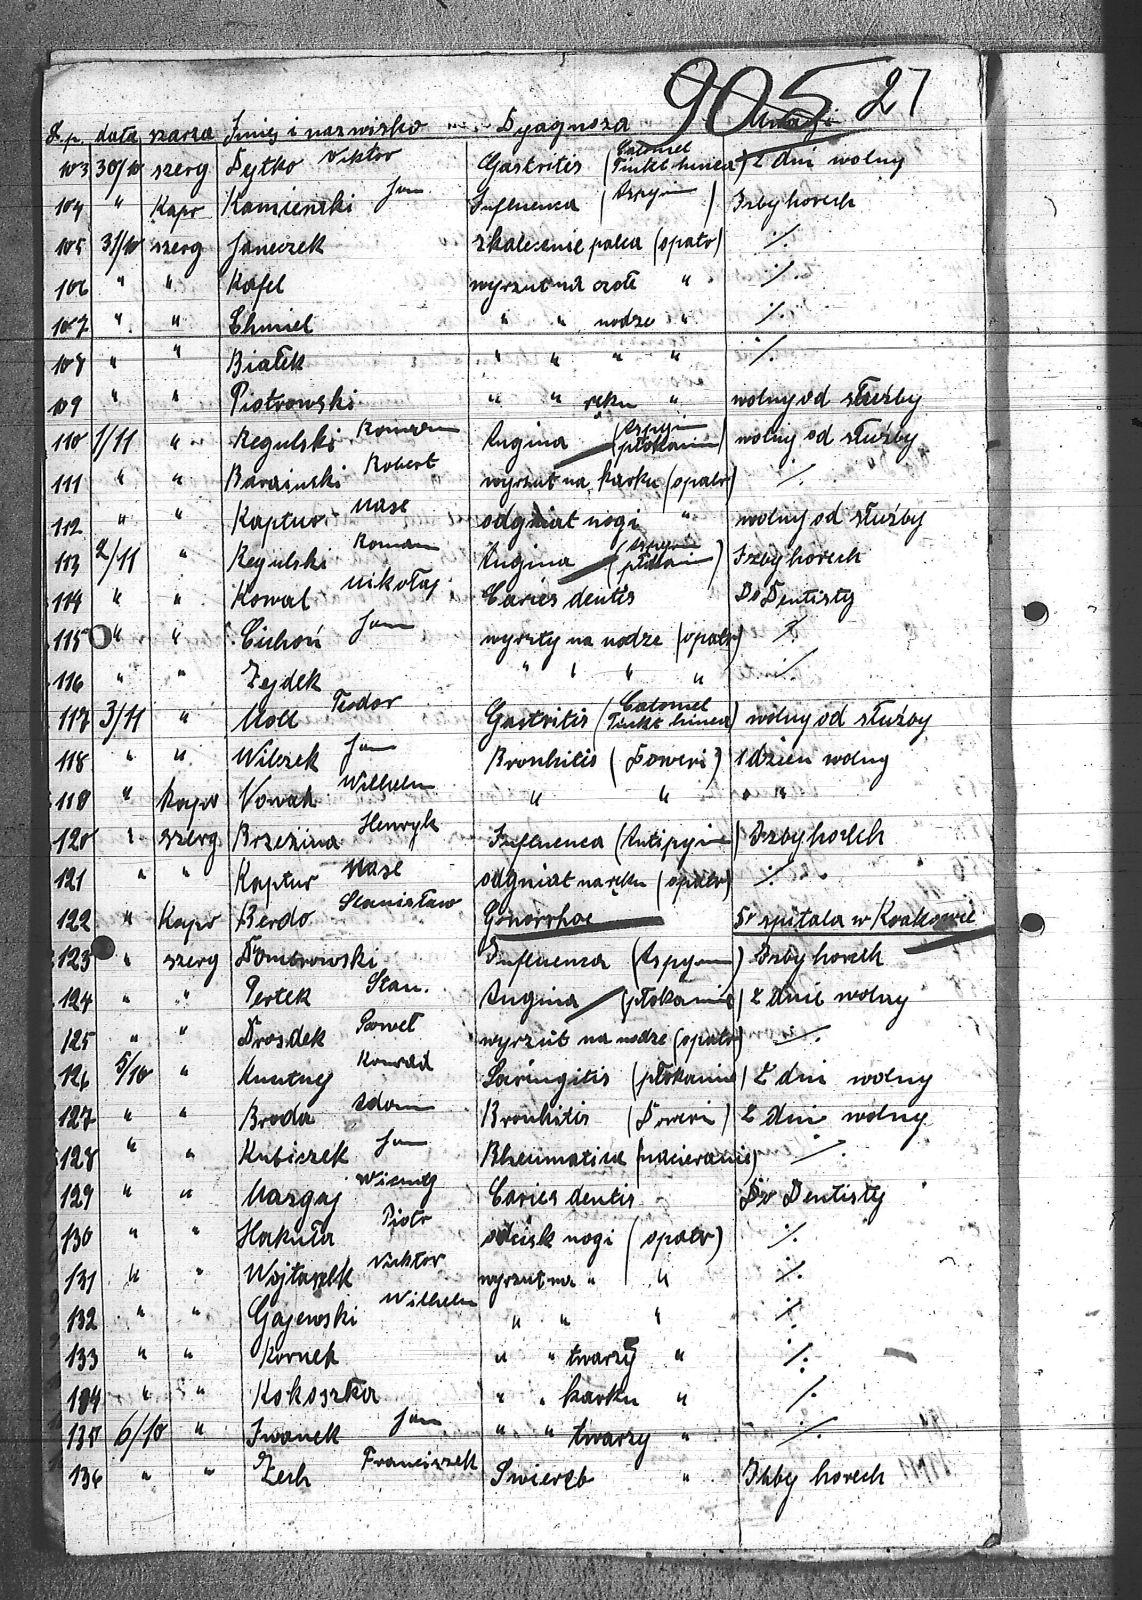 905 27
L.p. data szarża Imię i nazwisko Dyagnoza Uwagi
103 30/10 szerg Dytko Viktor Gastritis (Calomel Tinkt. hinea) 2 dni wolny
104 " Kapr Kamienski Jan Influenca (Aspyrin) Izby horech
105 31/10 szerg Janeczek skalecenie palca (opatr) ./.
106 " " Kafel wyrzut na czole " ./.
107 " " Chmiel " " nodze " ./.
108 " " Białek " " " " ./.
109 " " Piotrowski " " ręku " wolny od służby
110 1/11 " Regulski Roman Angina (Aspyrin płokanie) wolny od służby
111 " " Barainski Robert wyrzut na karku (opatr) ./.
112 " " Kaptur Mase odgniat nogi " wolny od służby
113 2/11 " Regulski Roman Angina (Aspyrin płokanie) Izby horech
114 " " Kowal Mikołaj Caries dentis Do Dentisty
115 " " Cichoń Jan wyrzty na nodze (opatr) ./.
116 " " Zejdek " " " " ./.
117 3/11 " Moll Teodor Gastritis (Calomel Tinkt. hinea) wolny od służby
118 " " Wilczek Jan Bronhitis (Doweri) 1 dzien wolny
119 " Kapr Nowak Wilhelm " " " "
120 " szerg Brzezina Henryk Influenca (Antipyrin) Izby horech
121 " " Kaptur Mase odgniat na ręku (opatr) ./.
122 " Kapr Berdo Stanisław Gonorrhoe Do spitala w Krakowie
123 " szerg Dombrowski Influenca (Aspyrin) Izby horech
124 " " Pertek Stan. Angina (płokanie) 2 dnie wolny
125 " " Drozdek Paweł wyrzut na nodze (opatr) ./.
126 5/10 " Kuntny Konrad Laringitis (płokanie) 2 dni wolny
127 " " Broda Adam Bronhitis (Doweri) 2 dni wolny
128 " " Kubiczek Jan Rheumatisu (nacieranie) ./.
129 " " Mazgaj Wicenty Caries dentis Do Dentisty
130 " " Hakuła Piotr odcisk nogi (opatr) ./.
131 " " Wojtaszek Viktor wyrzut na " " ./.
132 " " Gajewski Wilhelm " " " ./.
133 " " Kornek " " twarzy " ./.
134 " " Kokoszka " " karku " ./.
135 6/10 " Iwanek Jan " " twarzy " ./.
136 " " Zech Franciszek Swierzb " Izby horech